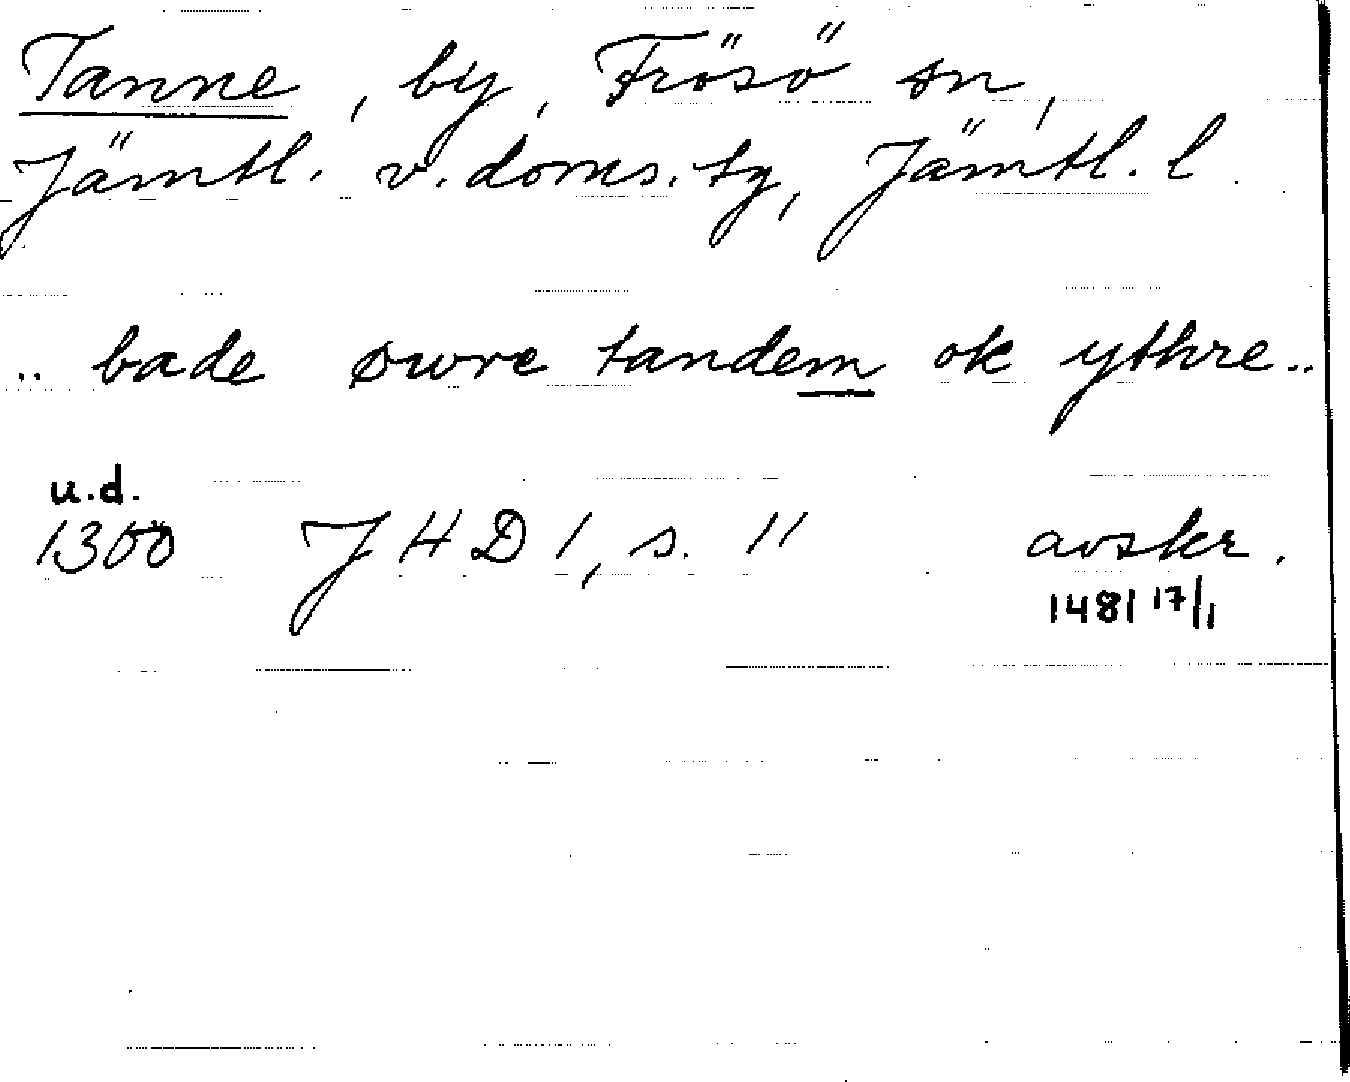 Tanne, by, Frösö sn,
Jämtl. v. doms. tg, Jämtl. l.
.. bade øwre tandem ok ythre..
u.d.
1300 JHD 1, s. 11 avskr.
1481 17/1